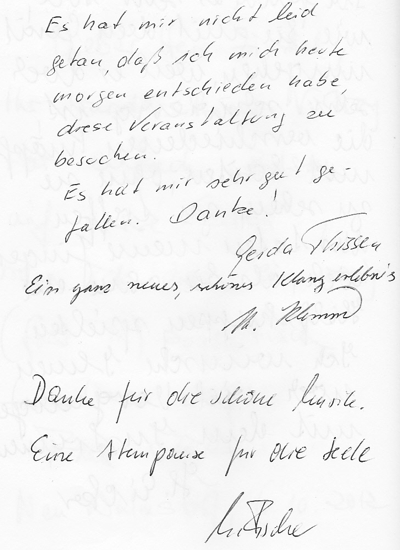 Es hat mir nicht leid
getan, daß ich mich heute
morgen entschieden habe,
diese Veranstaltung zu
besuchen.
Es hat mir sehr gut ge-
fallen. Danke!
Gerda Thissen
Ein ganz neues, schönes Klangerlebnis
M. Klemm
Danke für die schöne Musik.
Eine Atempause für die Seele